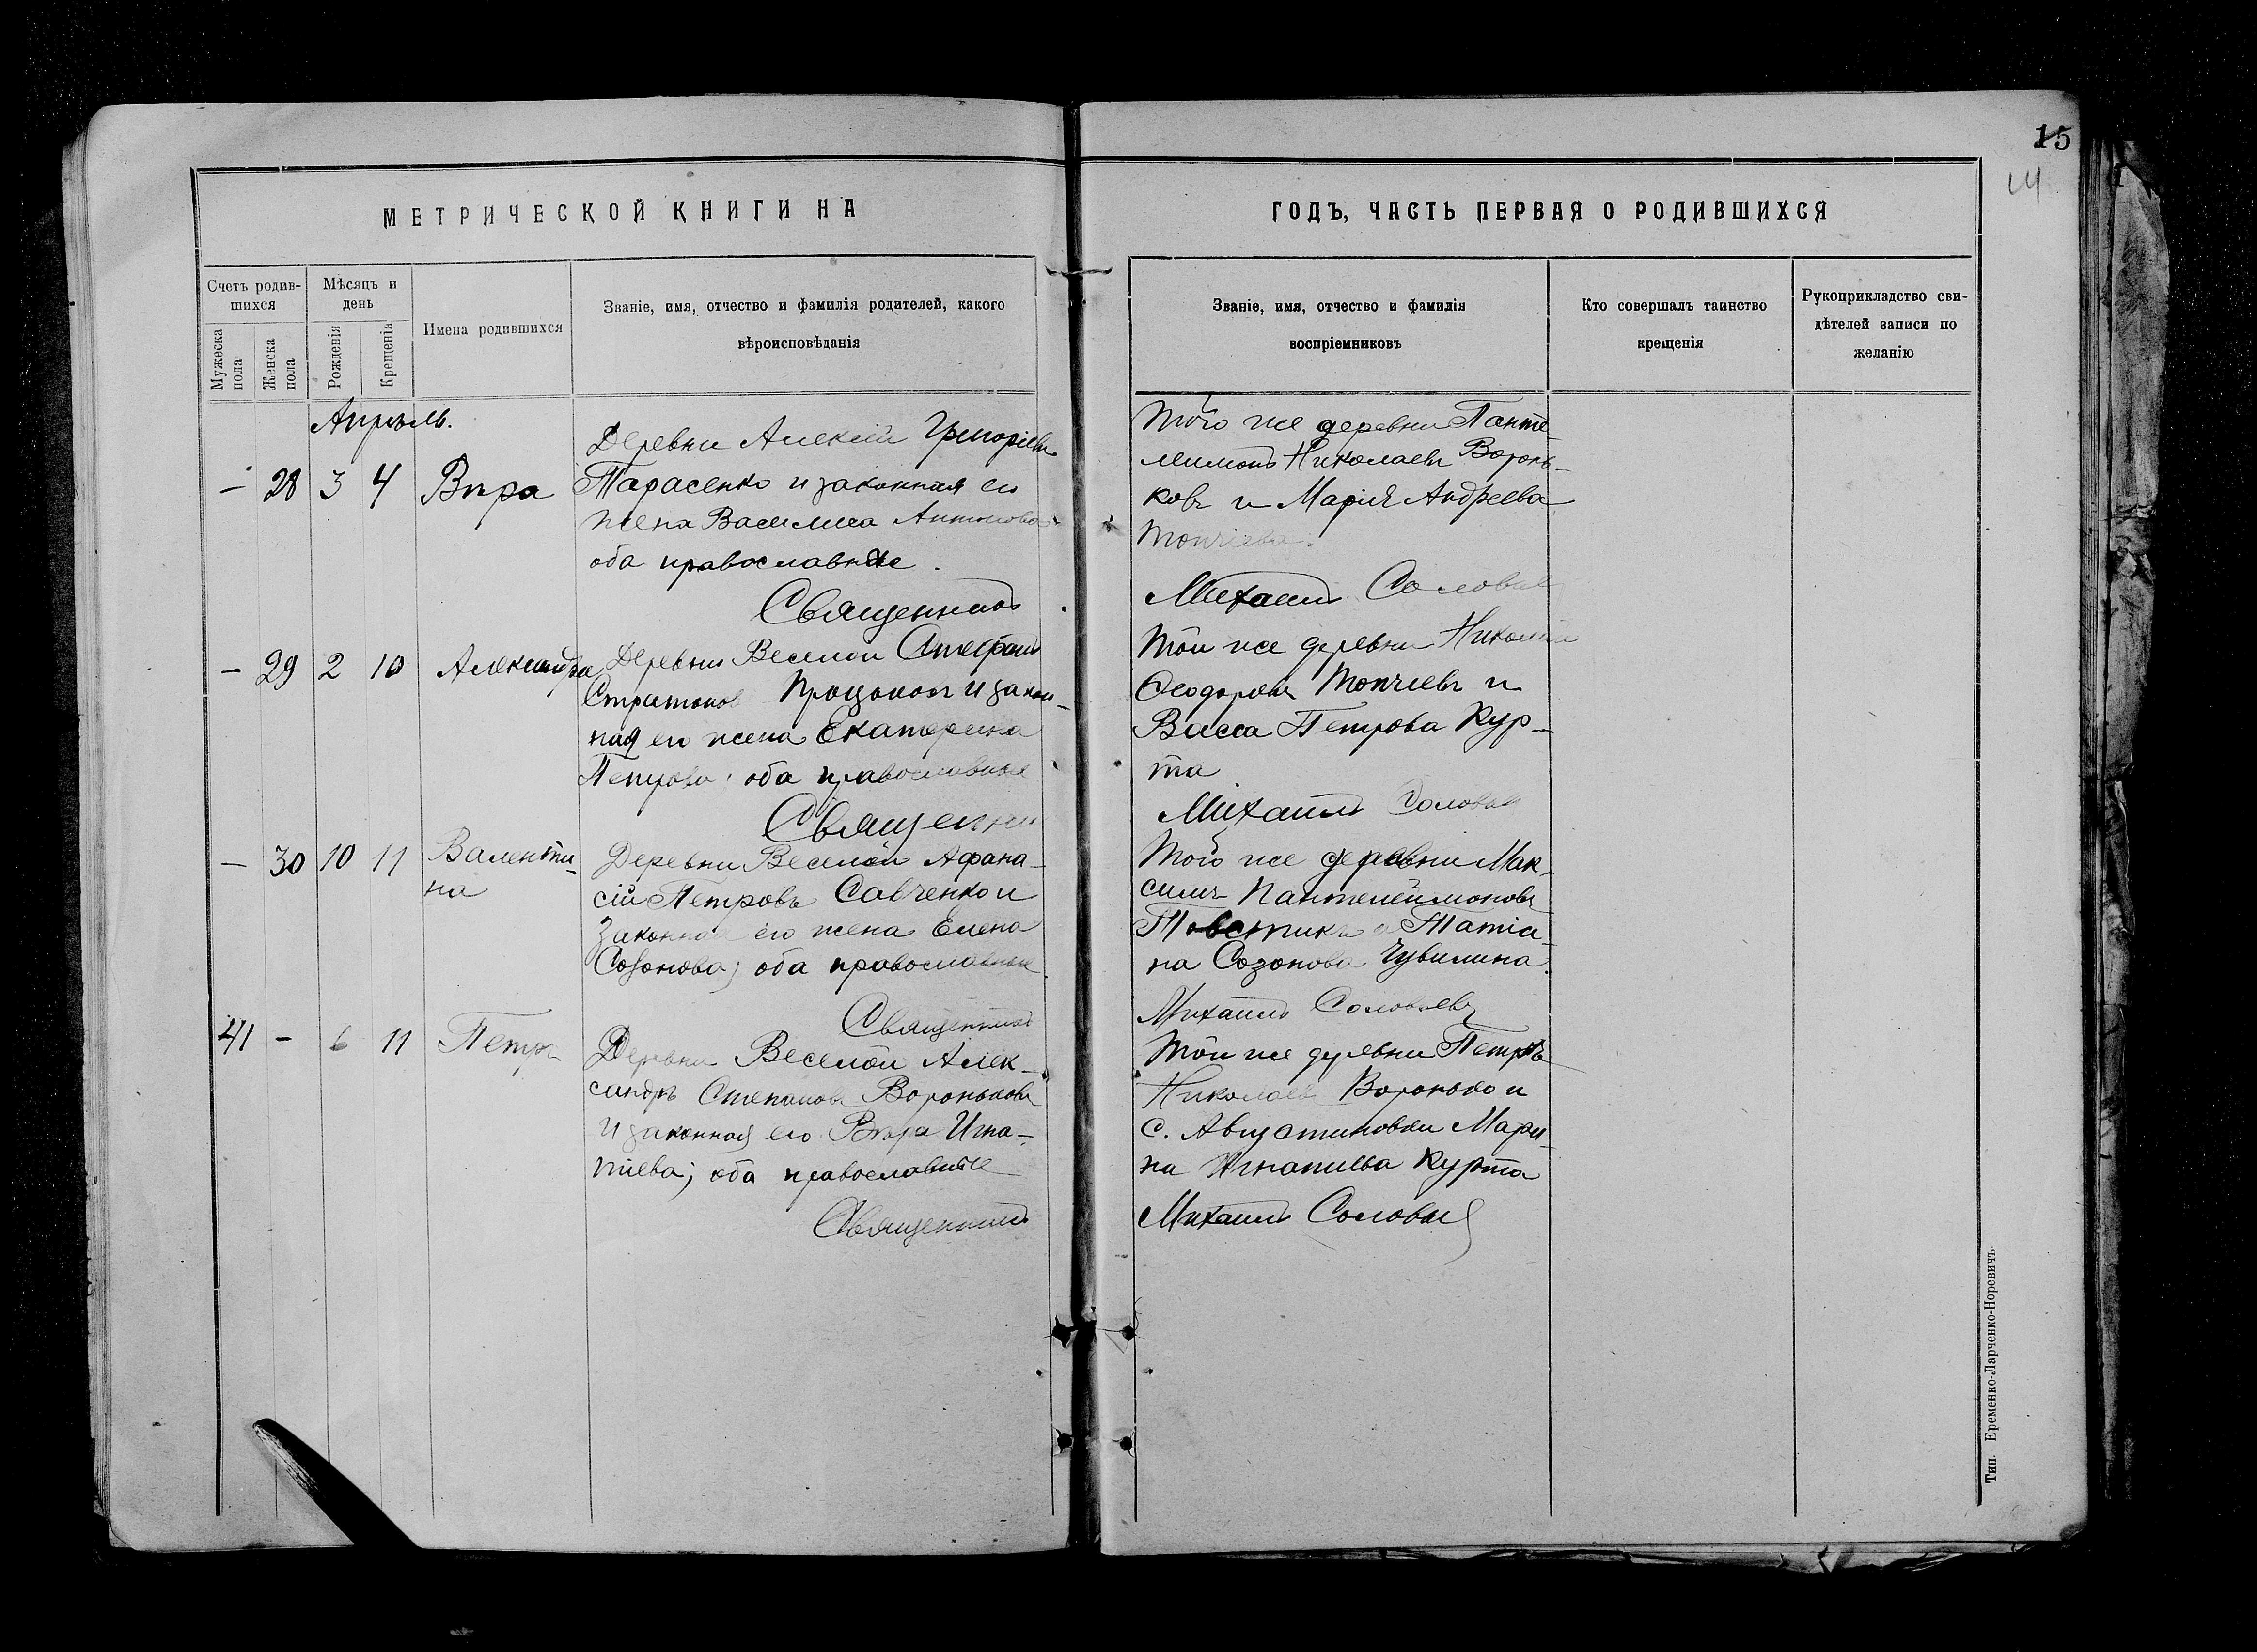 15
14
МЕТРИЧЕСКОЙ КНИГИ НА
ГОДЪ, ЧАСТЬ ПЕРВАЯ О РОДИВШИХСЯ
Счетъ родив-
шихся
Мѣсяцъ и
день
Мужеска
пола
Женска
пола
Рожденія
Крещенія
Имена родившихся
Званіе, имя, отчество и фамилія родителей, какого
вѣроисповѣданія
Званіе, имя, отчество и фамилія
воспріемниковъ
Кто совершалъ таинство
крещенія
Рукоприкладство сви-
дѣтелей записи по
желанію
Апрѣль.
– 28 3 4 Вѣра
Деревни Алексій Григоріевъ
Тарасенко и законная его
жена Василиса Антонова
оба православные.
Священникъ
Того же деревни Панте-
леимонъ Николаевъ Воронь-
ковъ и Марія Андреева
Топчіева.
Михаилъ Соловьев
– 29 2 10 Александра
Деревни Веселой Стефанъ
Стратонов и закон-
ная его жена Екатерина
Петрова; оба православные
Священник
Той же деревни Николай
Феодоровъ Топчіевъ и
Васса Петрова Кур-
та
Михаилъ Соловьев
– 30 10 11 Валенти-
на
Деревни Веселой Афана-
сій Петровъ Савченко и
Законная его жена Елена
Созонова; оба православные
Священникъ
Того же деревни Мак-
симъ Пантелеймоновъ
Товстикъ и Татіа-
на Созонова Чувилина.
Михаилъ Соловьевъ
41 – 6 11 Петръ
Деревни Веселой Алек-
сандръ Степановъ Вороньковъ
и законная его Вѣра Игна-
тіева; оба православные
Священникъ
Той же деревни Петръ
Николаевъ Воронько и
с. Августиновки Мари-
на Игнатиева Курта
Михаилъ Соловьев
Тип. Еременко-Ларченко-Норевичъ.